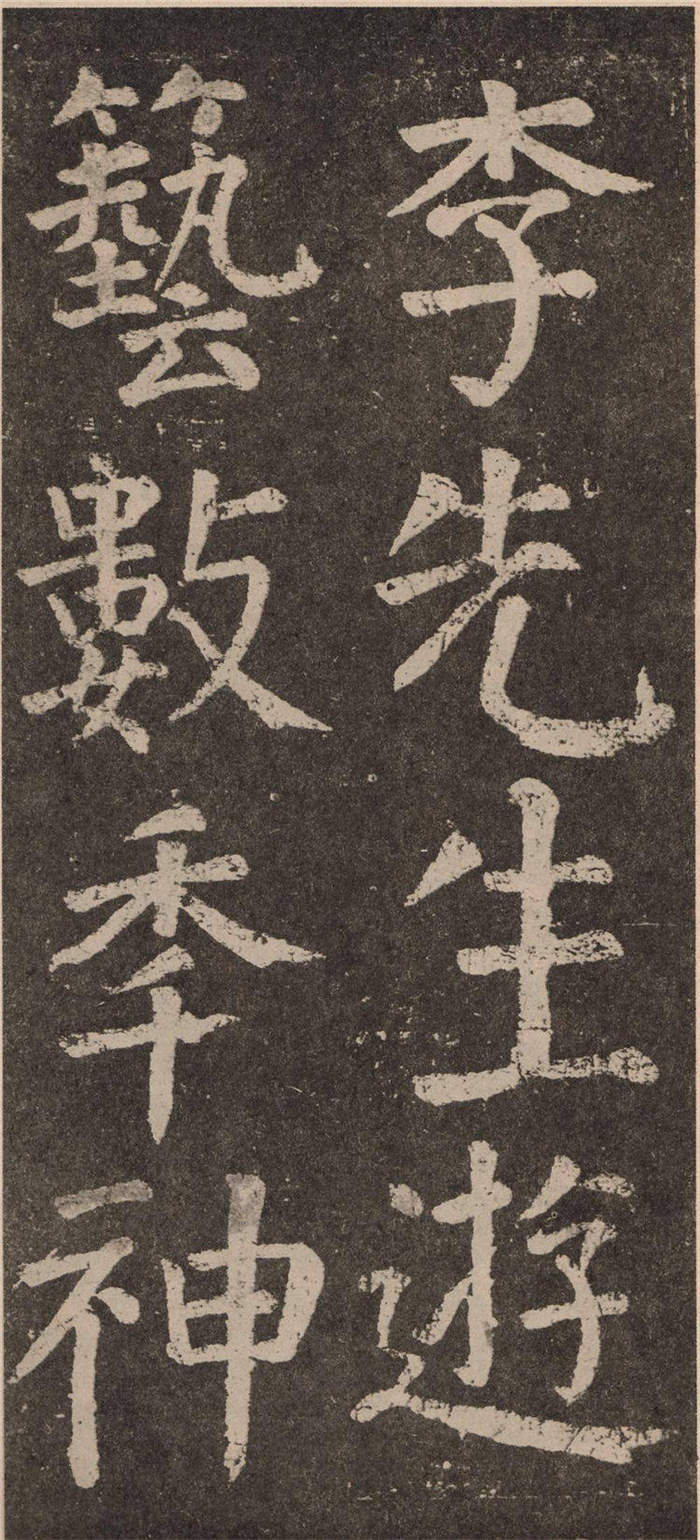 李先生遊
藝數季神